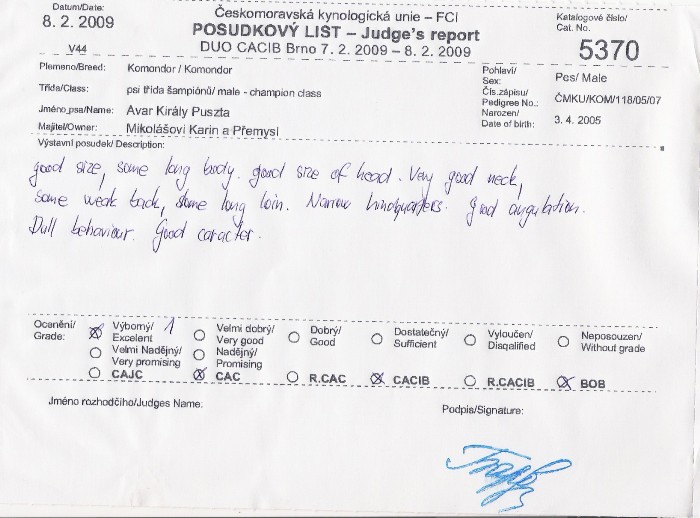 Datum/Date:
8. 2. 2009
V44
Českomoravská kynologická unie – FCI
POSUDKOVÝ LIST – Judge's report
DUO CACIB Brno 7. 2. 2009 – 8. 2. 2009
Katalogové číslo/
Cat. No.
5370
Plemeno/Breed: Komondor / Komondor
Třída/Class: psi třída šampiónů/ male - champion class
Jméno psa/Name: Avar Király Puszta
Majitel/Owner: Mikolášovi Karin a Přemysl
Pohlaví/
Sex: Pes/ Male
Čís.zápisu/
Pedigree No.: ČMKU/KOM/118/05/07
Narozen/
Date of birth: 3. 4. 2005
Výstavní posudek/ Description:
good size, some long body. good size of head. Very good neck,
some weak back, some long loin. Narrow hindquarters. good angulation.
Dull behaviour. Good caracter.
Ocenění/
Grade:
Výborný/ 1
Excelent
Velmi dobrý/
Very good
Dobrý/
Good
Dostatečný/
Sufficient
Vyloučen/
Disqalified
Neposouzen/
Without grade
Velmi Nadějný/
Very promising
Nadějný/
Promising
CAJC CAC R.CAC CACIB R.CACIB BOB
Jméno rozhodčího/Judges Name:
Podpis/Signature: